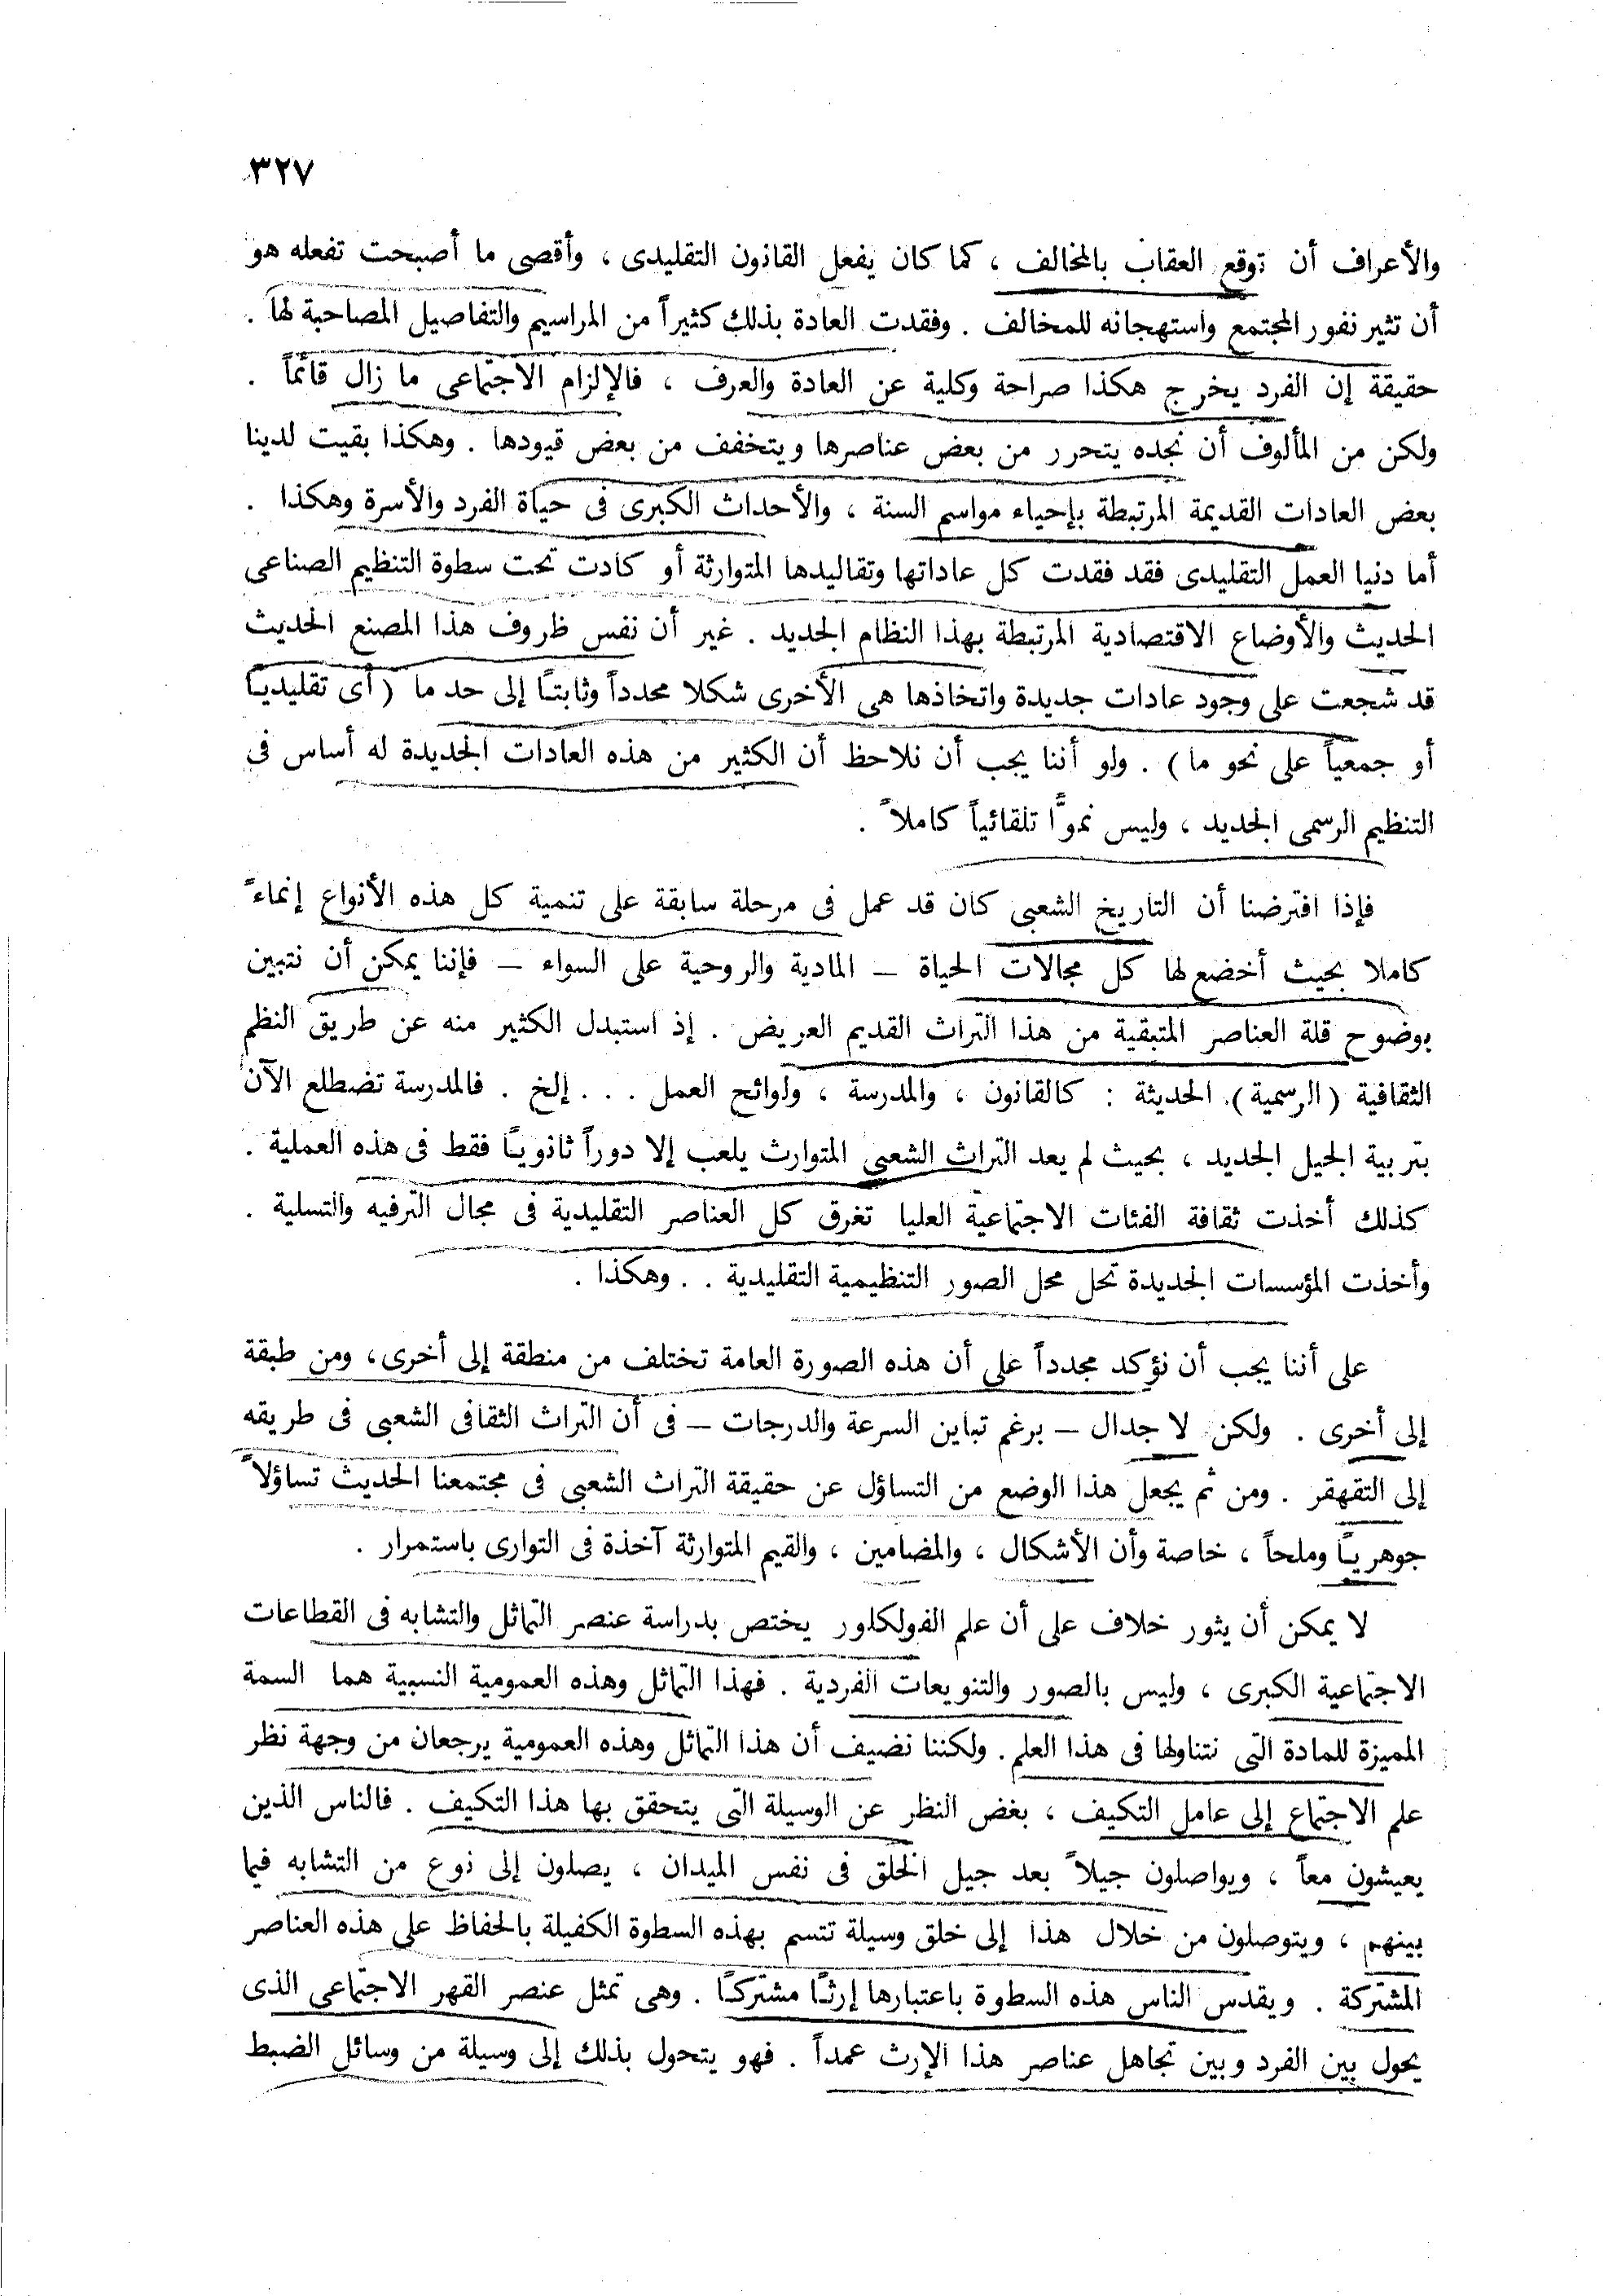 ٣٢٧
والأعراف أن توقع العقاب بالمخالف ، كما كان يفعل القانون التقليدى ، وأقصى ما أصبحت تفعله هو
أن تثير نفور المجتمع واستهجانه للمخالف . وفقدت العادة بذلك كثيراً من المراسيم والتفاصيل المصاحبة لها .
حقيقة إن الفرد يخرج هكذا صراحة وكلية عن العادة والعرف ، فالإلزام الاجتماعى ما زال قائماً .
ولكن من المألوف أن نجده يتحرر من بعض عناصرها ويتخفف من بعض قيودها . وهكذا بقيت لدينا
بعض العادات القديمة المرتبطة بإحياء مواسم السنة ، والأحداث الكبرى فى حياة الفرد والأسرة وهكذا .
أما دنيا العمل التقليدى فقد فقدت كل عاداتها وتقاليدها المتوارثة أو كادت تحت سطوة التنظيم الصناعى
الحديث والأوضاع الاقتصادية المرتبطة بهذا النظام الجديد . غير أن نفس ظروف هذا المصنع الحديث
قد شجعت على وجود عادات جديدة واتخاذها هى الأخرى شكلا محدداً وثابتاً إلى حد ما ( أى تقليدياً
أو جمعياً على نحو ما ) . ولو أننا يجب أن نلاحظ أن الكثير من هذه العادات الجديدة له أساس فى
التنظيم الرسمى الجديد ، وليس نموًّا تلقائياً كاملاً .
فإذا افترضنا أن التاريخ الشعبى كان قد عمل فى مرحلة سابقة على تنمية كل هذه الأنواع إنماءً
كاملا بحيث أخضع لها كل مجالات الحياة – المادية والروحية على السواء – فإننا يمكن أن نتبين
بوضوح قلة العناصر المتبقية من هذا التراث القديم العريض . إذ استبدل الكثير منه عن طريق النظم
الثقافية ( الرسمية ) الحديثة : كالقانون ، والمدرسة ، ولوائح العمل . . . إلخ . فالمدرسة تضطلع الآن
بتربية الجيل الجديد ، بحيث لم يعد التراث الشعبى المتوارث يلعب إلا دوراً ثانوياً فقط فى هذه العملية .
كذلك أخذت ثقافة الفئات الاجتماعية العليا تغرق كل العناصر التقليدية فى مجال الترفيه والتسلية .
وأخذت المؤسسات الجديدة تحل محل الصور التنظيمية التقليدية . . وهكذا .
على أننا يجب أن نؤكد مجدداً على أن هذه الصورة العامة تختلف من منطقة إلى أخرى ، ومن طبقة
إلى أخرى . ولكن لا جدال – برغم تباين السرعة والدرجات – فى أن التراث الثقافى الشعبى فى طريقه
إلى التقهقر . ومن ثم يجعل هذا الوضع من التساؤل عن حقيقة التراث الشعبى فى مجتمعنا الحديث تساؤلاً
جوهرياً وملحاً ، خاصة وأن الأشكال ، والمضامين ، والقيم المتوارثة آخذة فى التوارى باستمرار .
لا يمكن أن يثور خلاف على أن علم الفولكلور يختص بدراسة عنصر التماثل والتشابه فى القطاعات
الاجتماعية الكبرى ، وليس بالصور والتنويعات الفردية . فهذا التماثل وهذه العمومية النسبية هما السمة
المميزة للمادة التى نتناولها فى هذا العلم . ولكننا نضيف أن هذا التماثل وهذه العمومية يرجعان من وجهة نظر
علم الاجتماع إلى عامل التكيف ، بغض النظر عن الوسيلة التى يتحقق بها هذا التكيف . فالناس الذين
يعيشون معاً ، ويواصلون جيلاً بعد جيل الخلق فى نفس الميدان ، يصلون إلى نوع من التشابه فيما
بينهم ، ويتوصلون من خلال هذا إلى خلق وسيلة تتسم بهذه السطوة الكفيلة بالحفاظ على هذه العناصر
المشتركة . ويقدس الناس هذه السطوة باعتبارها إرثاً مشتركاً . وهى تمثل عنصر القهر الاجتماعى الذى
يحول بين الفرد وبين تجاهل عناصر هذا الإرث عمداً . فهو يتحول بذلك إلى وسيلة من وسائل الضبط